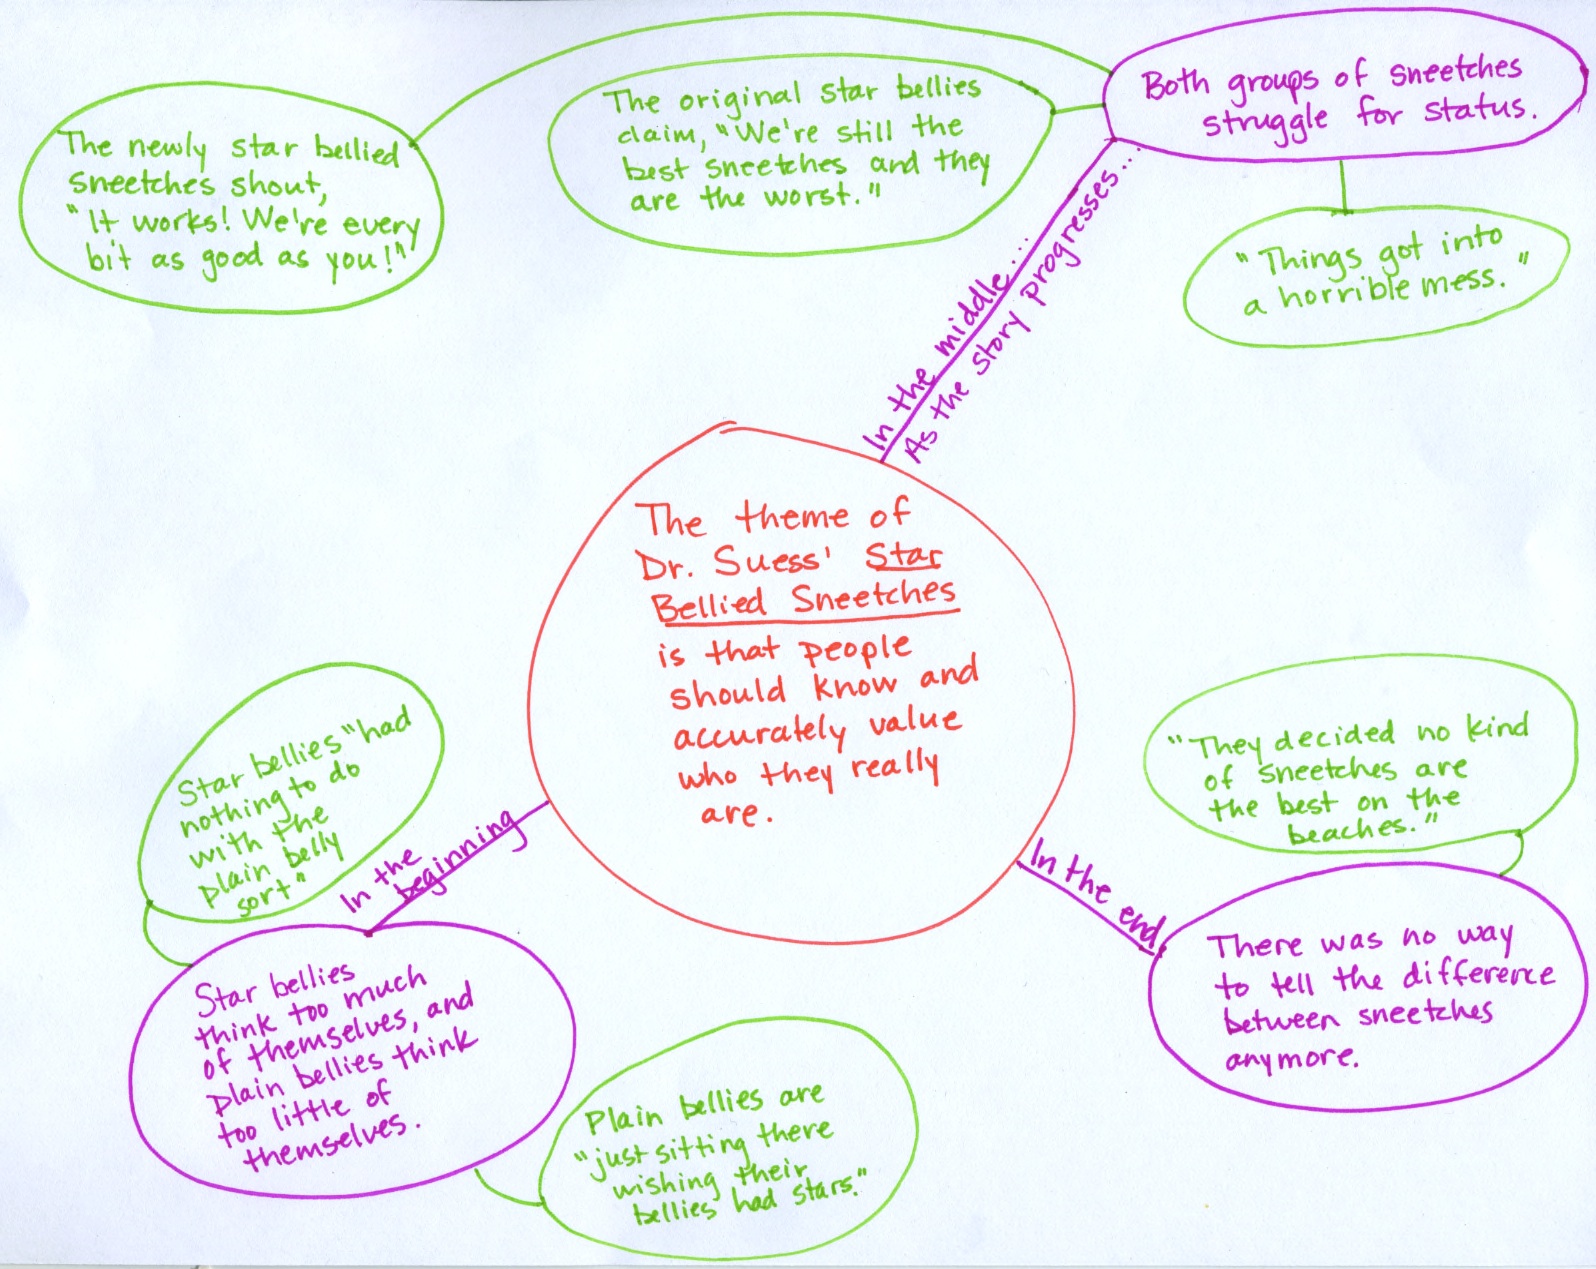 The newly star bellied
sneetches shout,
"It works! We're every
bit as good as you!"
The original star bellies
claim, "We're still the
best sneetches and they
are the worst."
Both groups of sneetches
struggle for status.
"Things got into
a horrible mess."
In the middle...
As the story progresses...
The theme of
Dr. Suess' Star
Bellied Sneetches
is that people
should know and
accurately value
who they really
are.
Star bellies "had
nothing to do
with the
plain belly
sort"
In the
beginning
Star bellies
think too much
of themselves, and
plain bellies think
too little of
themselves.
Plain bellies are
"just sitting there
wishing their
bellies had stars."
"They decided no kind
of sneetches are
the best on the
beaches."
In the end,
There was no way
to tell the difference
between sneetches
anymore.